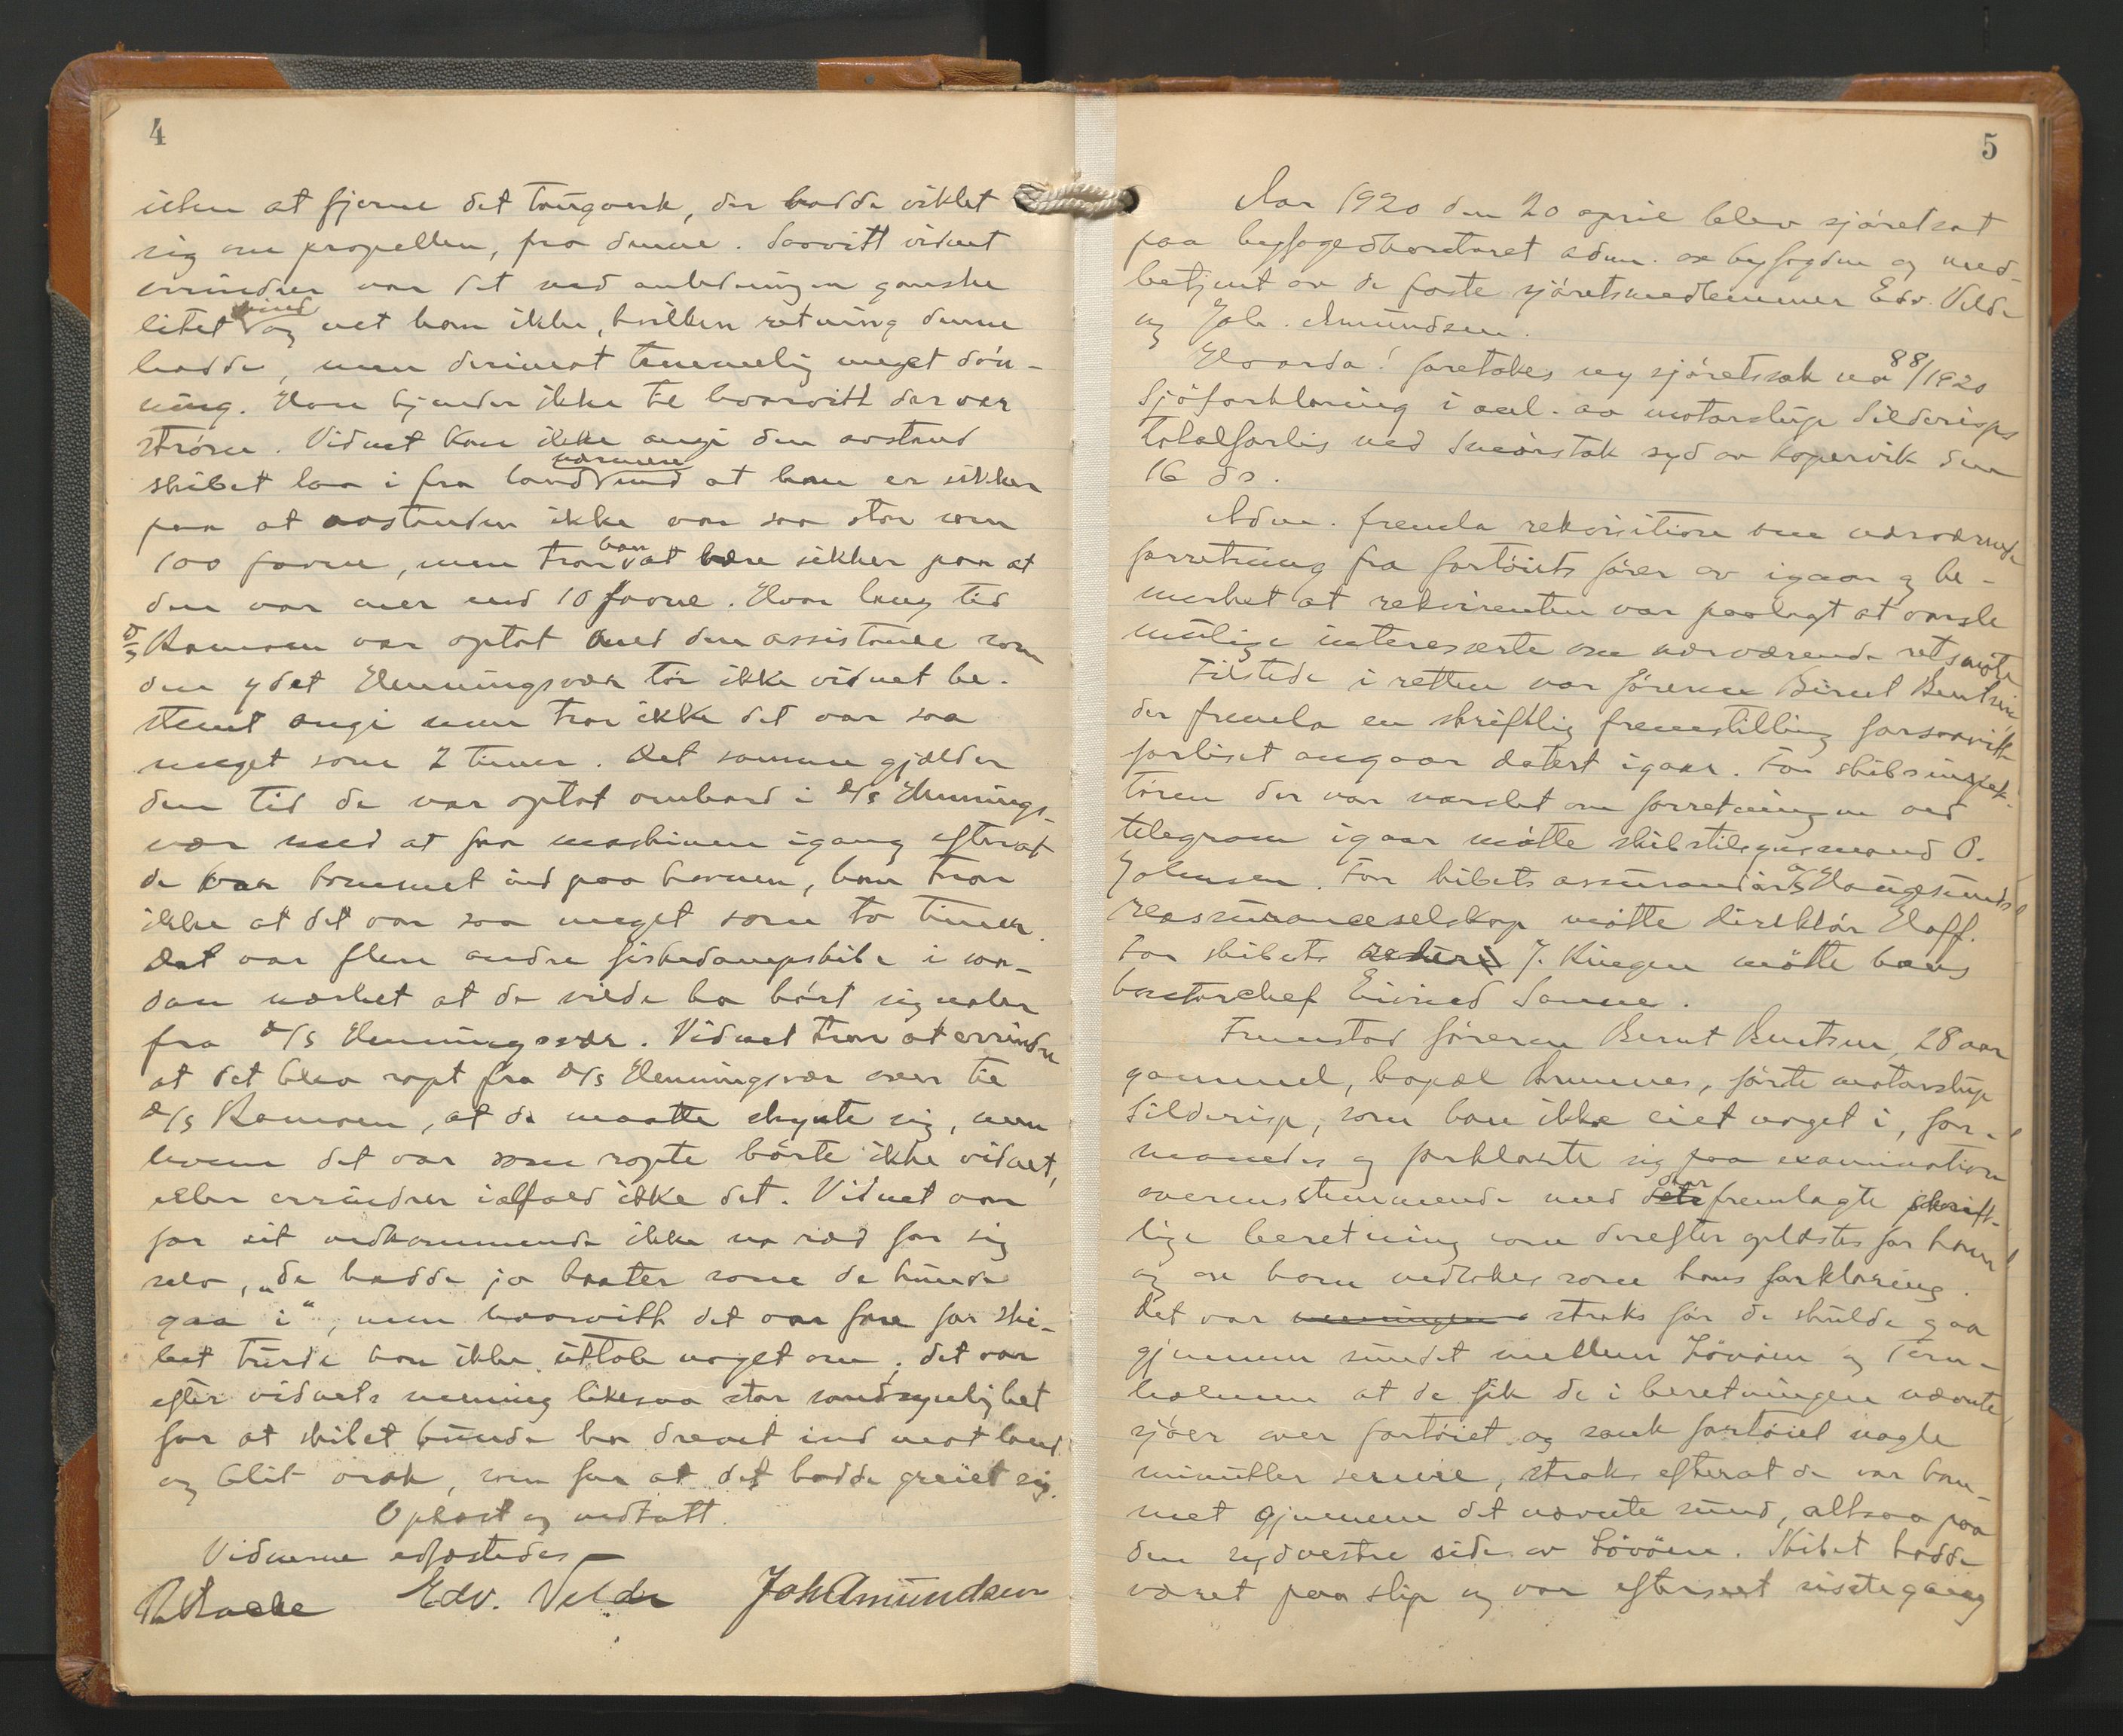 4
uten at fjerne det taugverk, der hadde viklet
sig om propellen, fra denne. Saavitt vidnet
erindrer var det ved anledningen ganske
litet vind og vet ham ikke, hvilken retning denne
hadde, men derimot temmelig meget dön-
ning. Han kjender ikke til hvorvitt der var
ström. Vidnet kan ikke angi den avstand
skibet laa i fra land nærmere end at han er sikker
paa at avstanden ikke var saa stor som
100 favne, men tror han at være sikker paa at
den var mer end 10 favne. Hvor lang tid
D/S Ramoen var optat med den assistanse som
den ydet Henningsvær tör ikke vidnet be-
stemt angi men tror ikke det var saa
meget som 2 timer. Det samme gjælder
den tid de var optat ombord i D/S Hennings-
vær med at faa maskinen igang efterat
de var kommet ind paa havnen, han tror
ikke at det var saa meget som to timer.
Det var flere andre fiskedampskibe i saa-
dan nærhet at de vilde ha hört signaler
fra D/S Henningsvær. Vidnet tror at erindre
at det blev ropt fra D/S Henningsvær over til
D/S Ramoen, at de maatte skynte sig, men
hvem det var som ropte hörte ikke vidnet,
eller erindrer ialfald ikke det. Vidnet var
for sit vedkommende ikke ræd for sig
selv, "de hadde jo baater som de kunde
gaa i", men hvorvitt det var fare for ski-
bet turde han ikke uttale noget om; det var
efter vidnets mening likesaa stor sandsynlighet
for at skibet kunde ha drevet ind mot land
og blit vrak, som for at det hadde greiet sig.
Oplæst og vedtatt.
Vidnerne edfæstedes
Edv. Velde Joh Amundsen
5
Aar 1920 den 20 april blev sjöret sat
paa byfogedkontoret adm. av byfogden og med-
betjent av de faste sjöretsmedlemmer Edv. Velde
og Joh. Amundsen.
Hvorda! foretokes ny sjöretssak no 88/1920
Sjöforklaring i anl. av motorslup Silderisps
totalforlis ved Sneörstak syd av Kopervik den
16 ds.
Adm. fremla rekvisition om nærværende
forretning fra fartöiets förer av igaar og be-
merket at rekvirenten var paalagt at varsle
mulige interesserte om nærværende retsmöte
Tilstede i retten var föreren Bernt Bentsen,
der fremla en skriftlig fremstilling forsaavitt
forliset angaar datert igaar. For skibsinspek-
tören der var varslet om forretningen ved
telegram igaar mötte skibstilsynsmand O.
Johnsen. For skibets assurandör A/S Haugesunds
reassuranceselskap mötte direktör Hoff.
For skibets rederi J. Kingen mötte hans
kontorchef Eivind Sanne.
Fremstod föreren Bernt Bentsen, 28 aar
gammel, bopæl Bremnes, förte motorslup
Silderisp, som han ikke eiet noget i, for-
manedes og forklarte sig paa examination
overensstemmende med den fremlagte skrift-
lige beretning som derefter oplæstes for ham
og av ham vedtokes som hans forklaring.
Det var meningen straks för de skulde gaa
gjennem sundet mellem Lövöen og Tern-
holmen at de fik de i beretningen nævnte
sjöer over fartöiet og sank fartöiet nogle
minutter senere, straks efterat de var kom-
met gjennem det nævnte sund, altsaa paa
den sydvestre side av Lövöen. Skibet hadde
været paa slip og var efterseet sisste gang